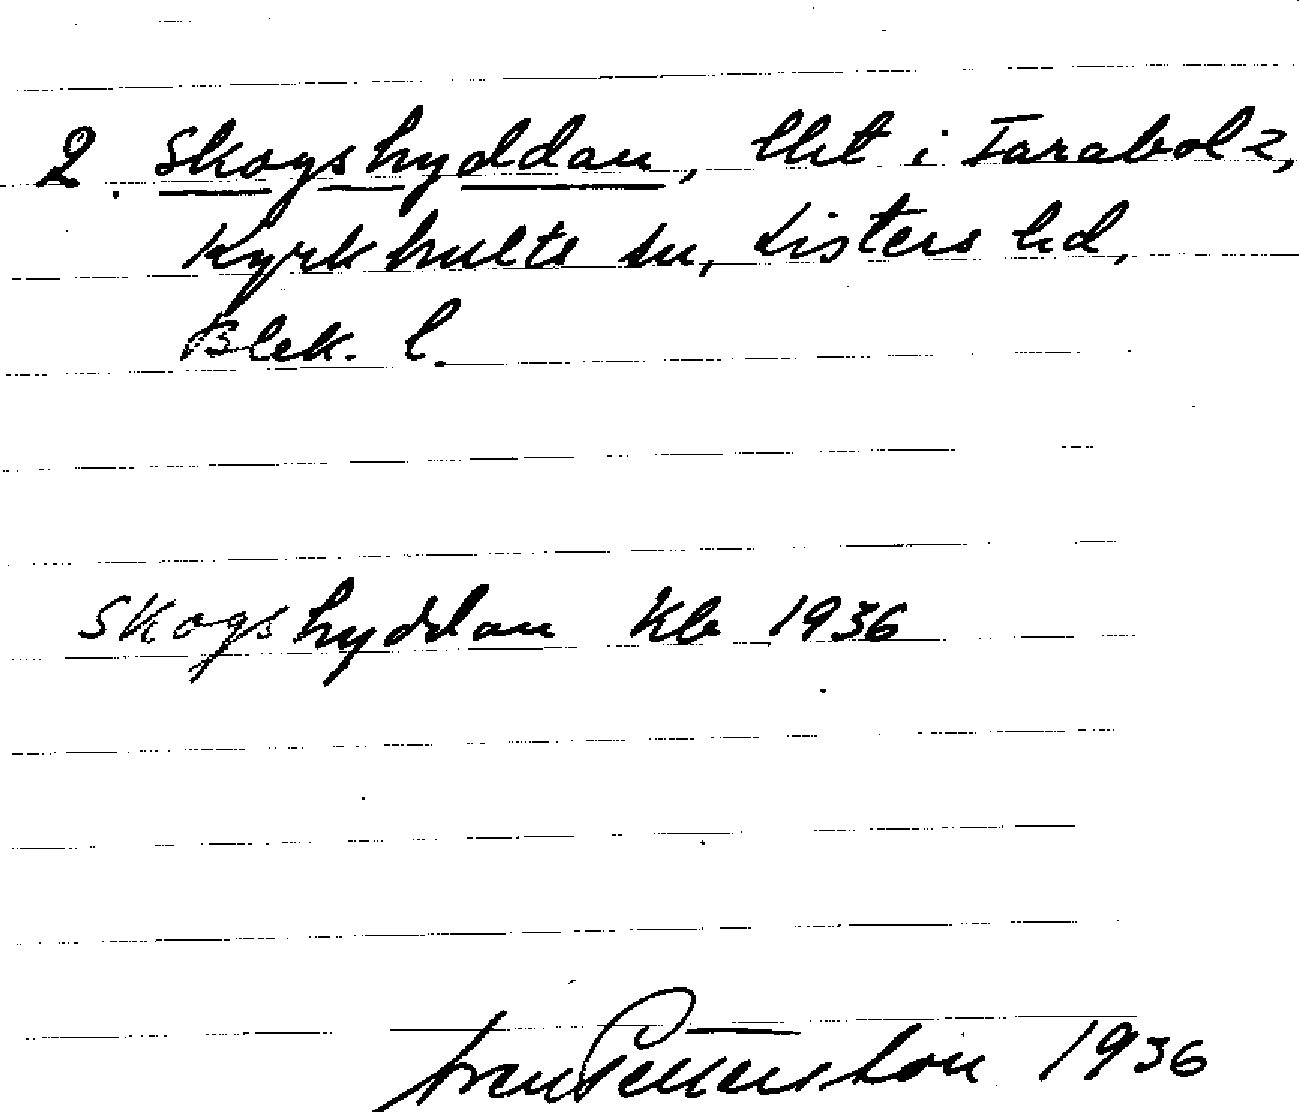 2. Skogshyddan, lht i Farabol 2,
Kyrkhults sn, Listers hd,
Blek. l.
Skogshyddan Kb 1936
Pettersson 1936